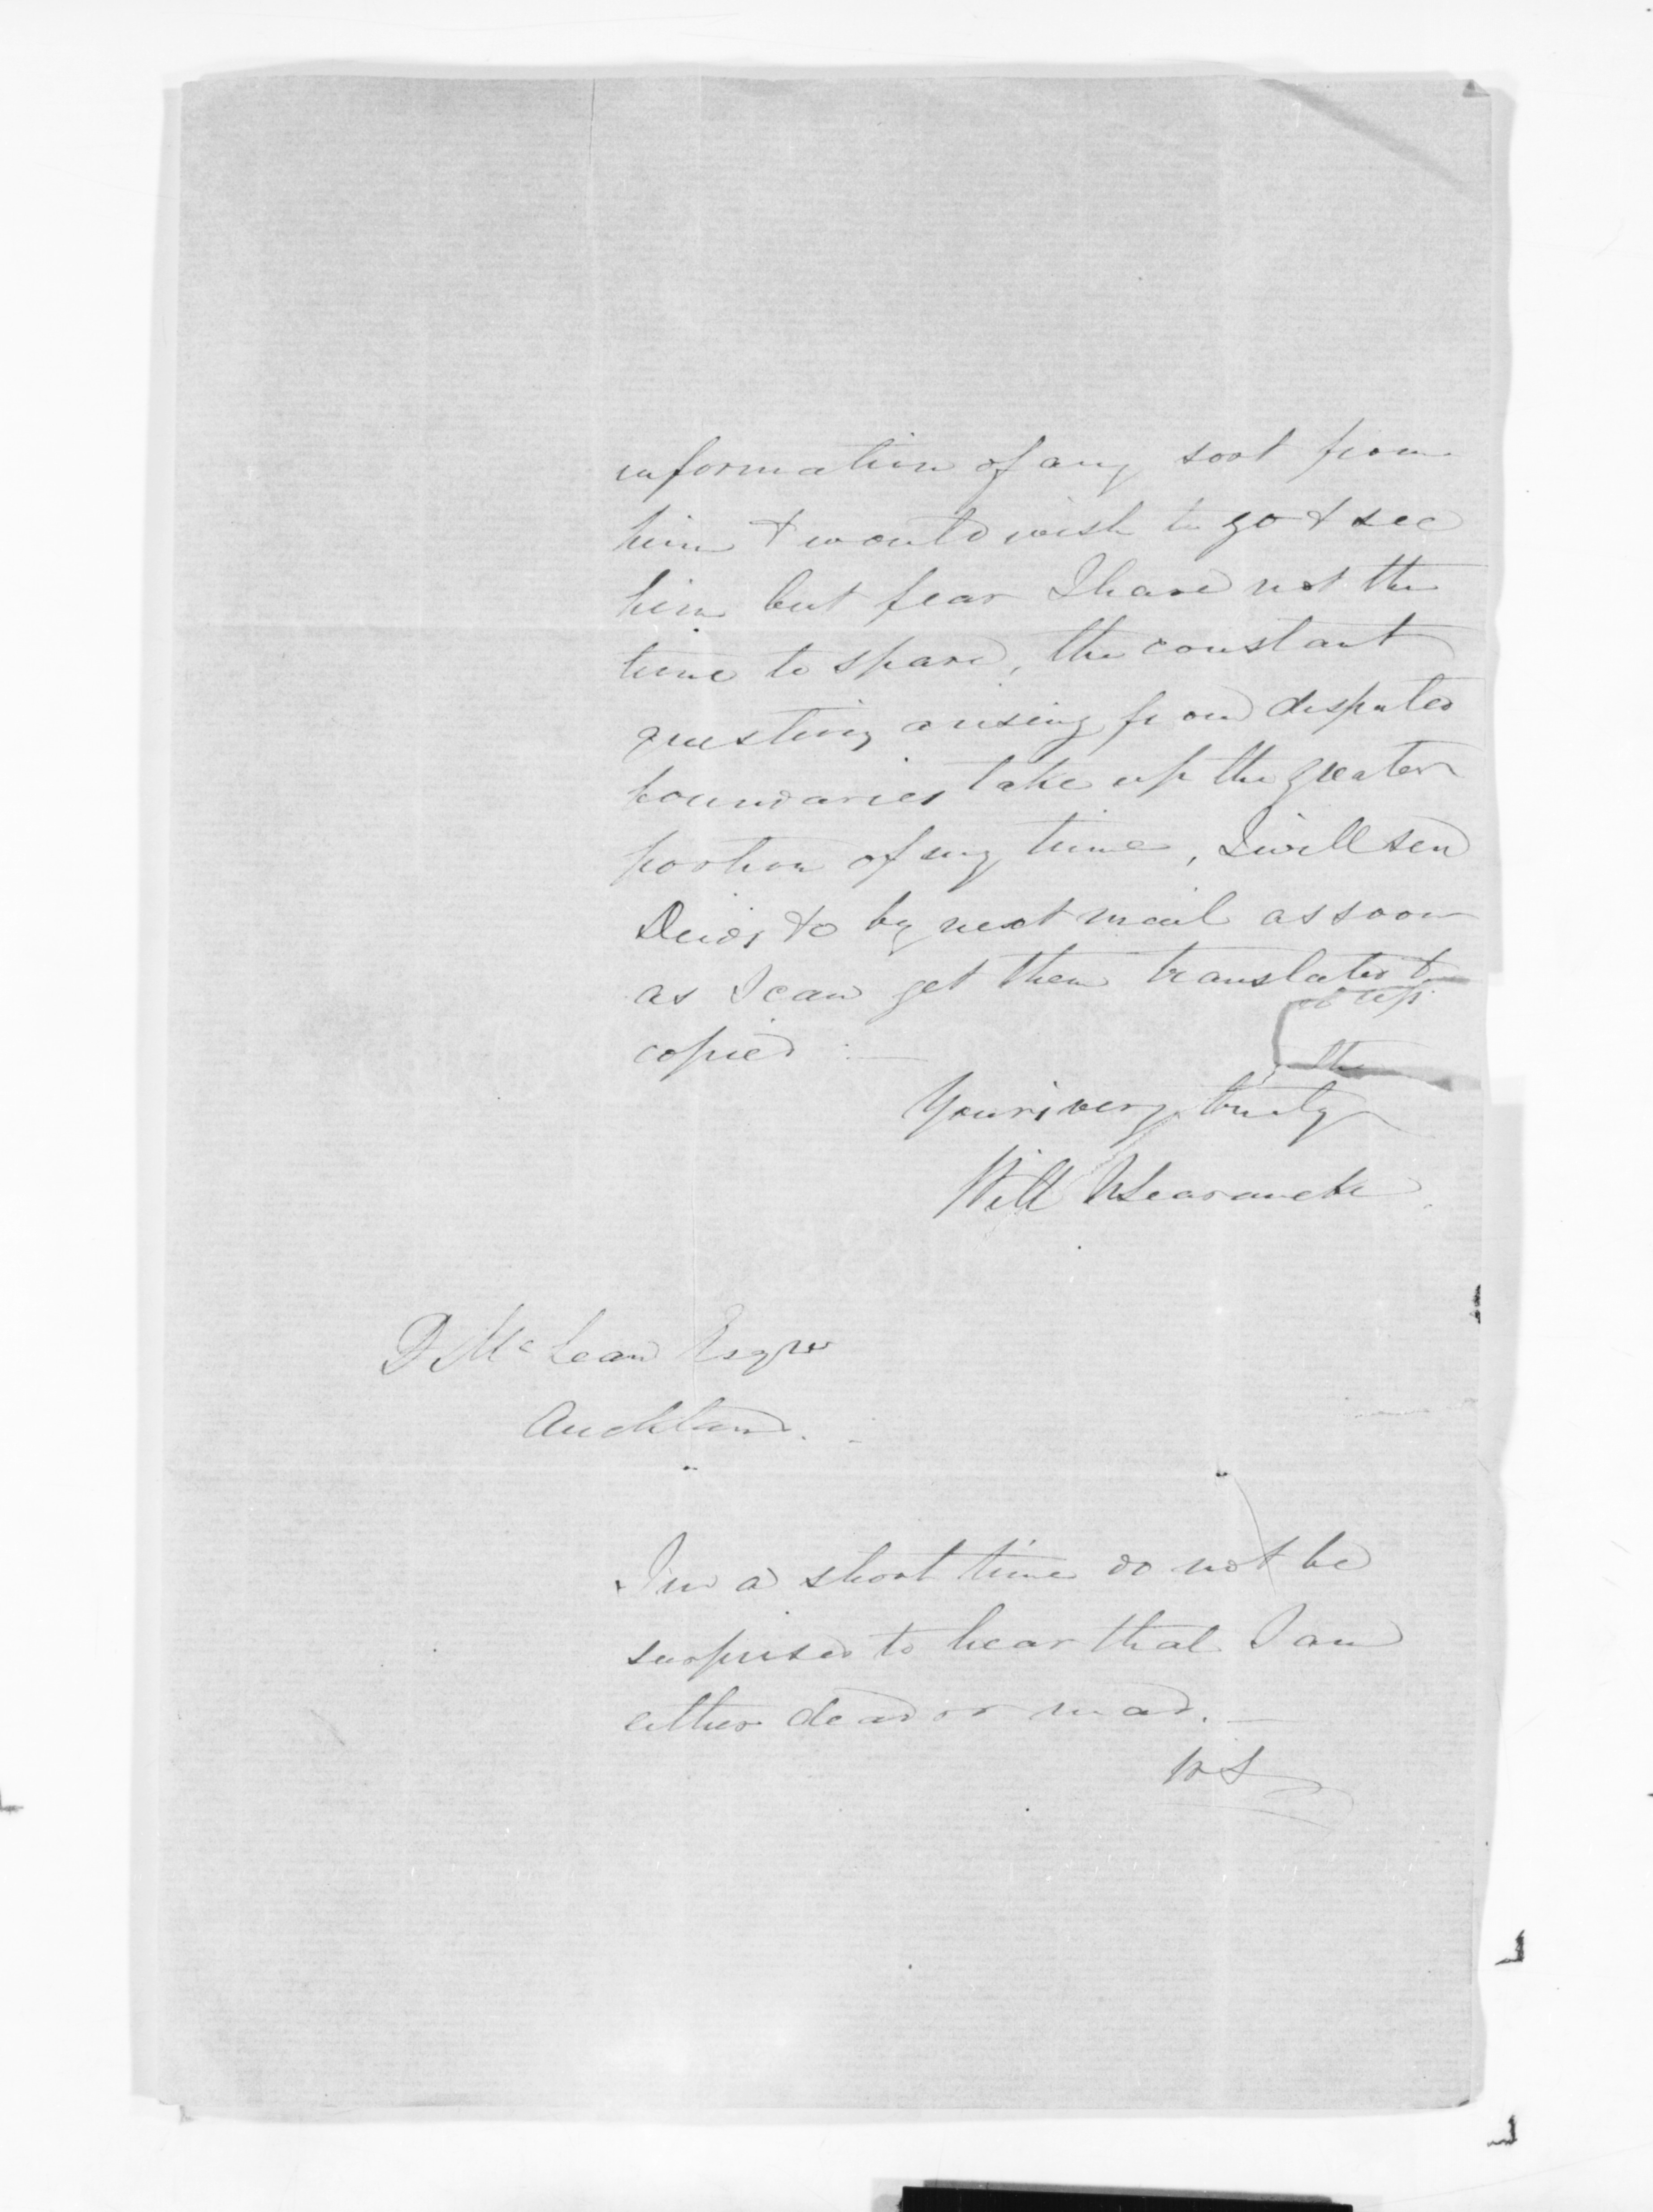 information of any sort from
him & would wish to go & see
him but fear I have not the
time to spare, the constant
questions arising from disputed
boundaries take up the greater
portion of my time, I will send
Deeds &c by next mail as soon
as I can get them translated &
copied :—
Yours very truly
Will N Searancke
D McLean Esqre
Auckland.
In a short time do not be
surprised to hear that I am
either dead or mad. —
WS